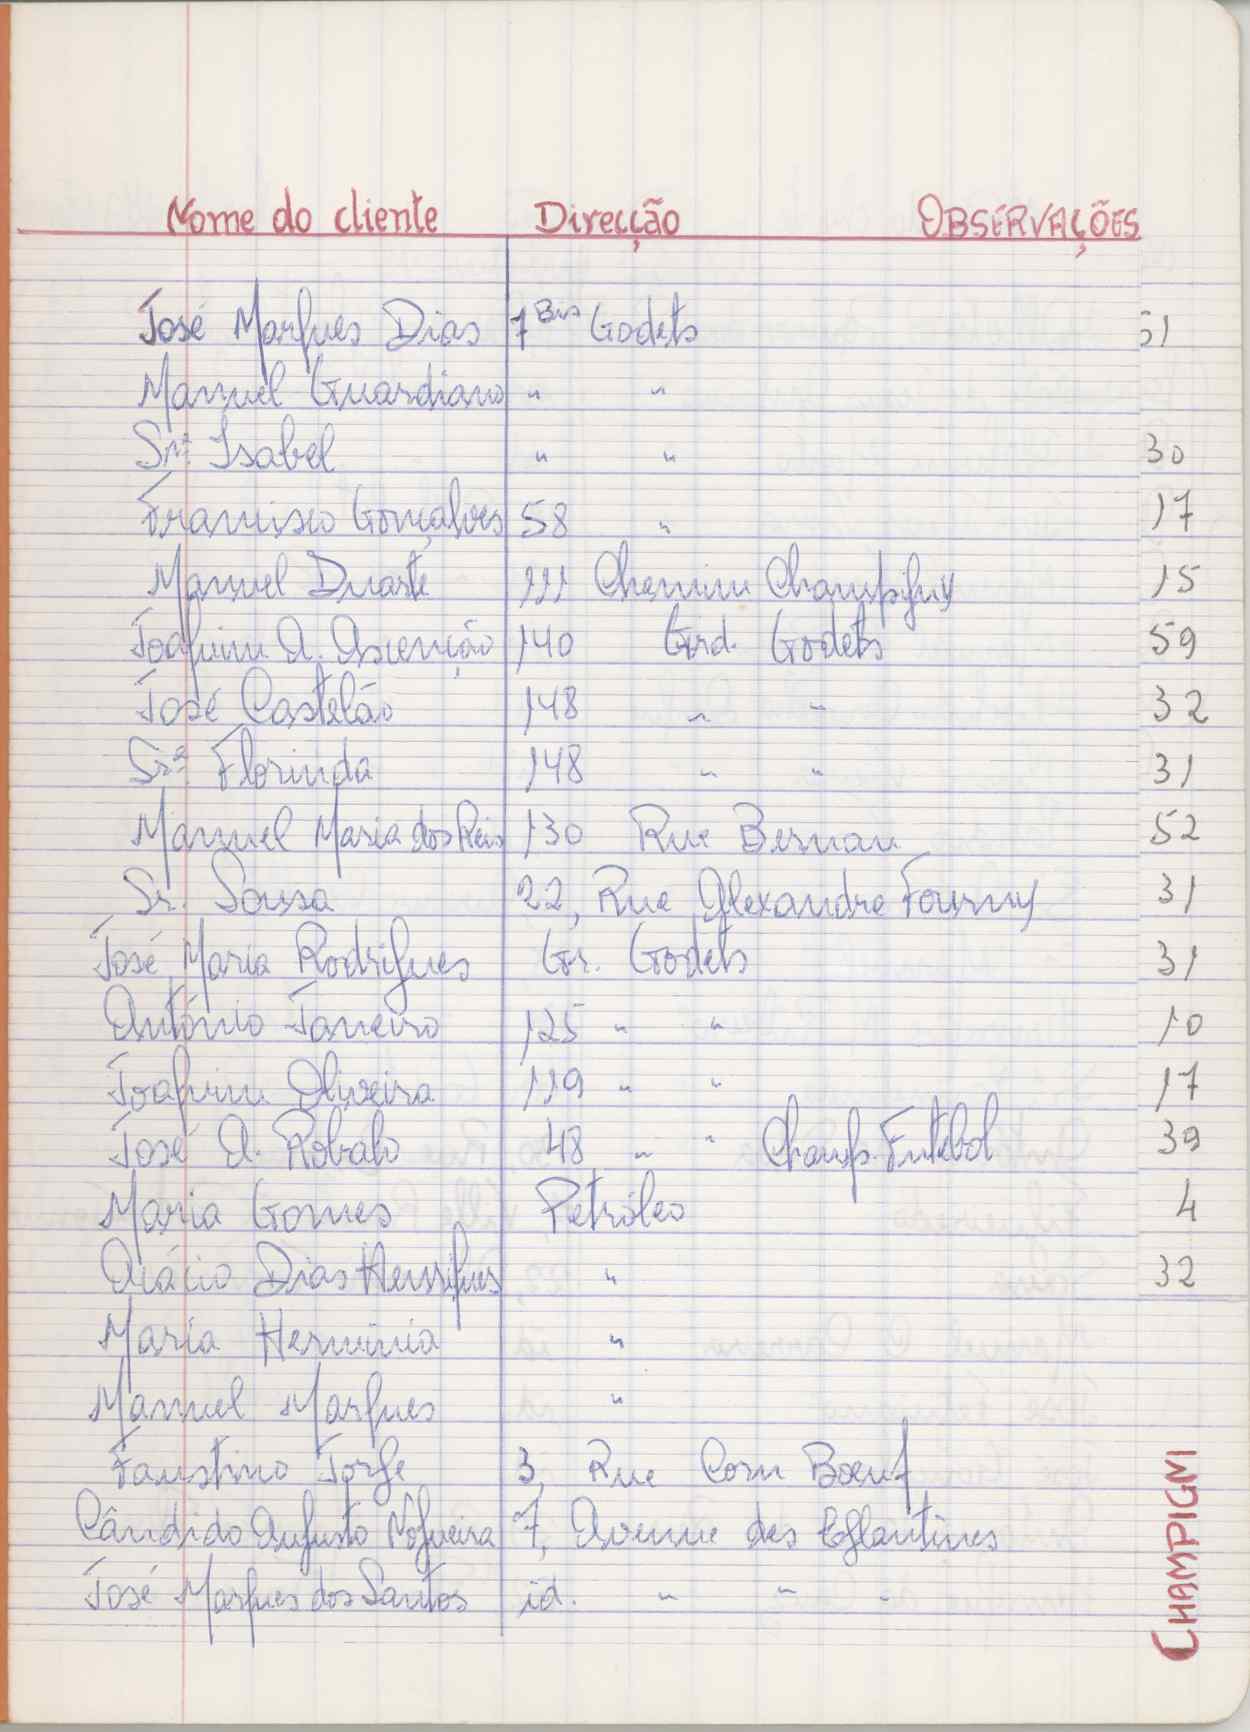 Nome do cliente Direcção OBSERVAÇÕES
José Marques Dias 7 Bis Godets 51
Manuel Guardiano " "
Srª Isabel " " 30
Francisco Gonçalves 58 " 17
Manuel Duarte 111 Chemin Champigny 15
Joaquim A. Ascenção 140 Grd. Godets 59
José Castelão 148 " " 32
Srª Florinda 148 " " 31
Manuel Maria dos Reis 130 Rue Bernau 52
Sr. Sousa 22, Rue Alexandre Fourny 31
José Maria Rodrigues Gr. Godets 31
António Janeiro 125 " " 10
Joaquim Oliveira 119 " " 17
José A. Robalo 48 " " Champ. Futebol 39
Maria Gomes Petróleo 4
Orácio Dias Henriques " 32
Maria Hermínia "
Manuel Marques "
Faustino Jorge 3, Rue Corn Boeuf
Cândido Augusto Nogueira 7, Avenue des Eglantines
José Marques dos Santos id. " " "
CHAMPIGNI